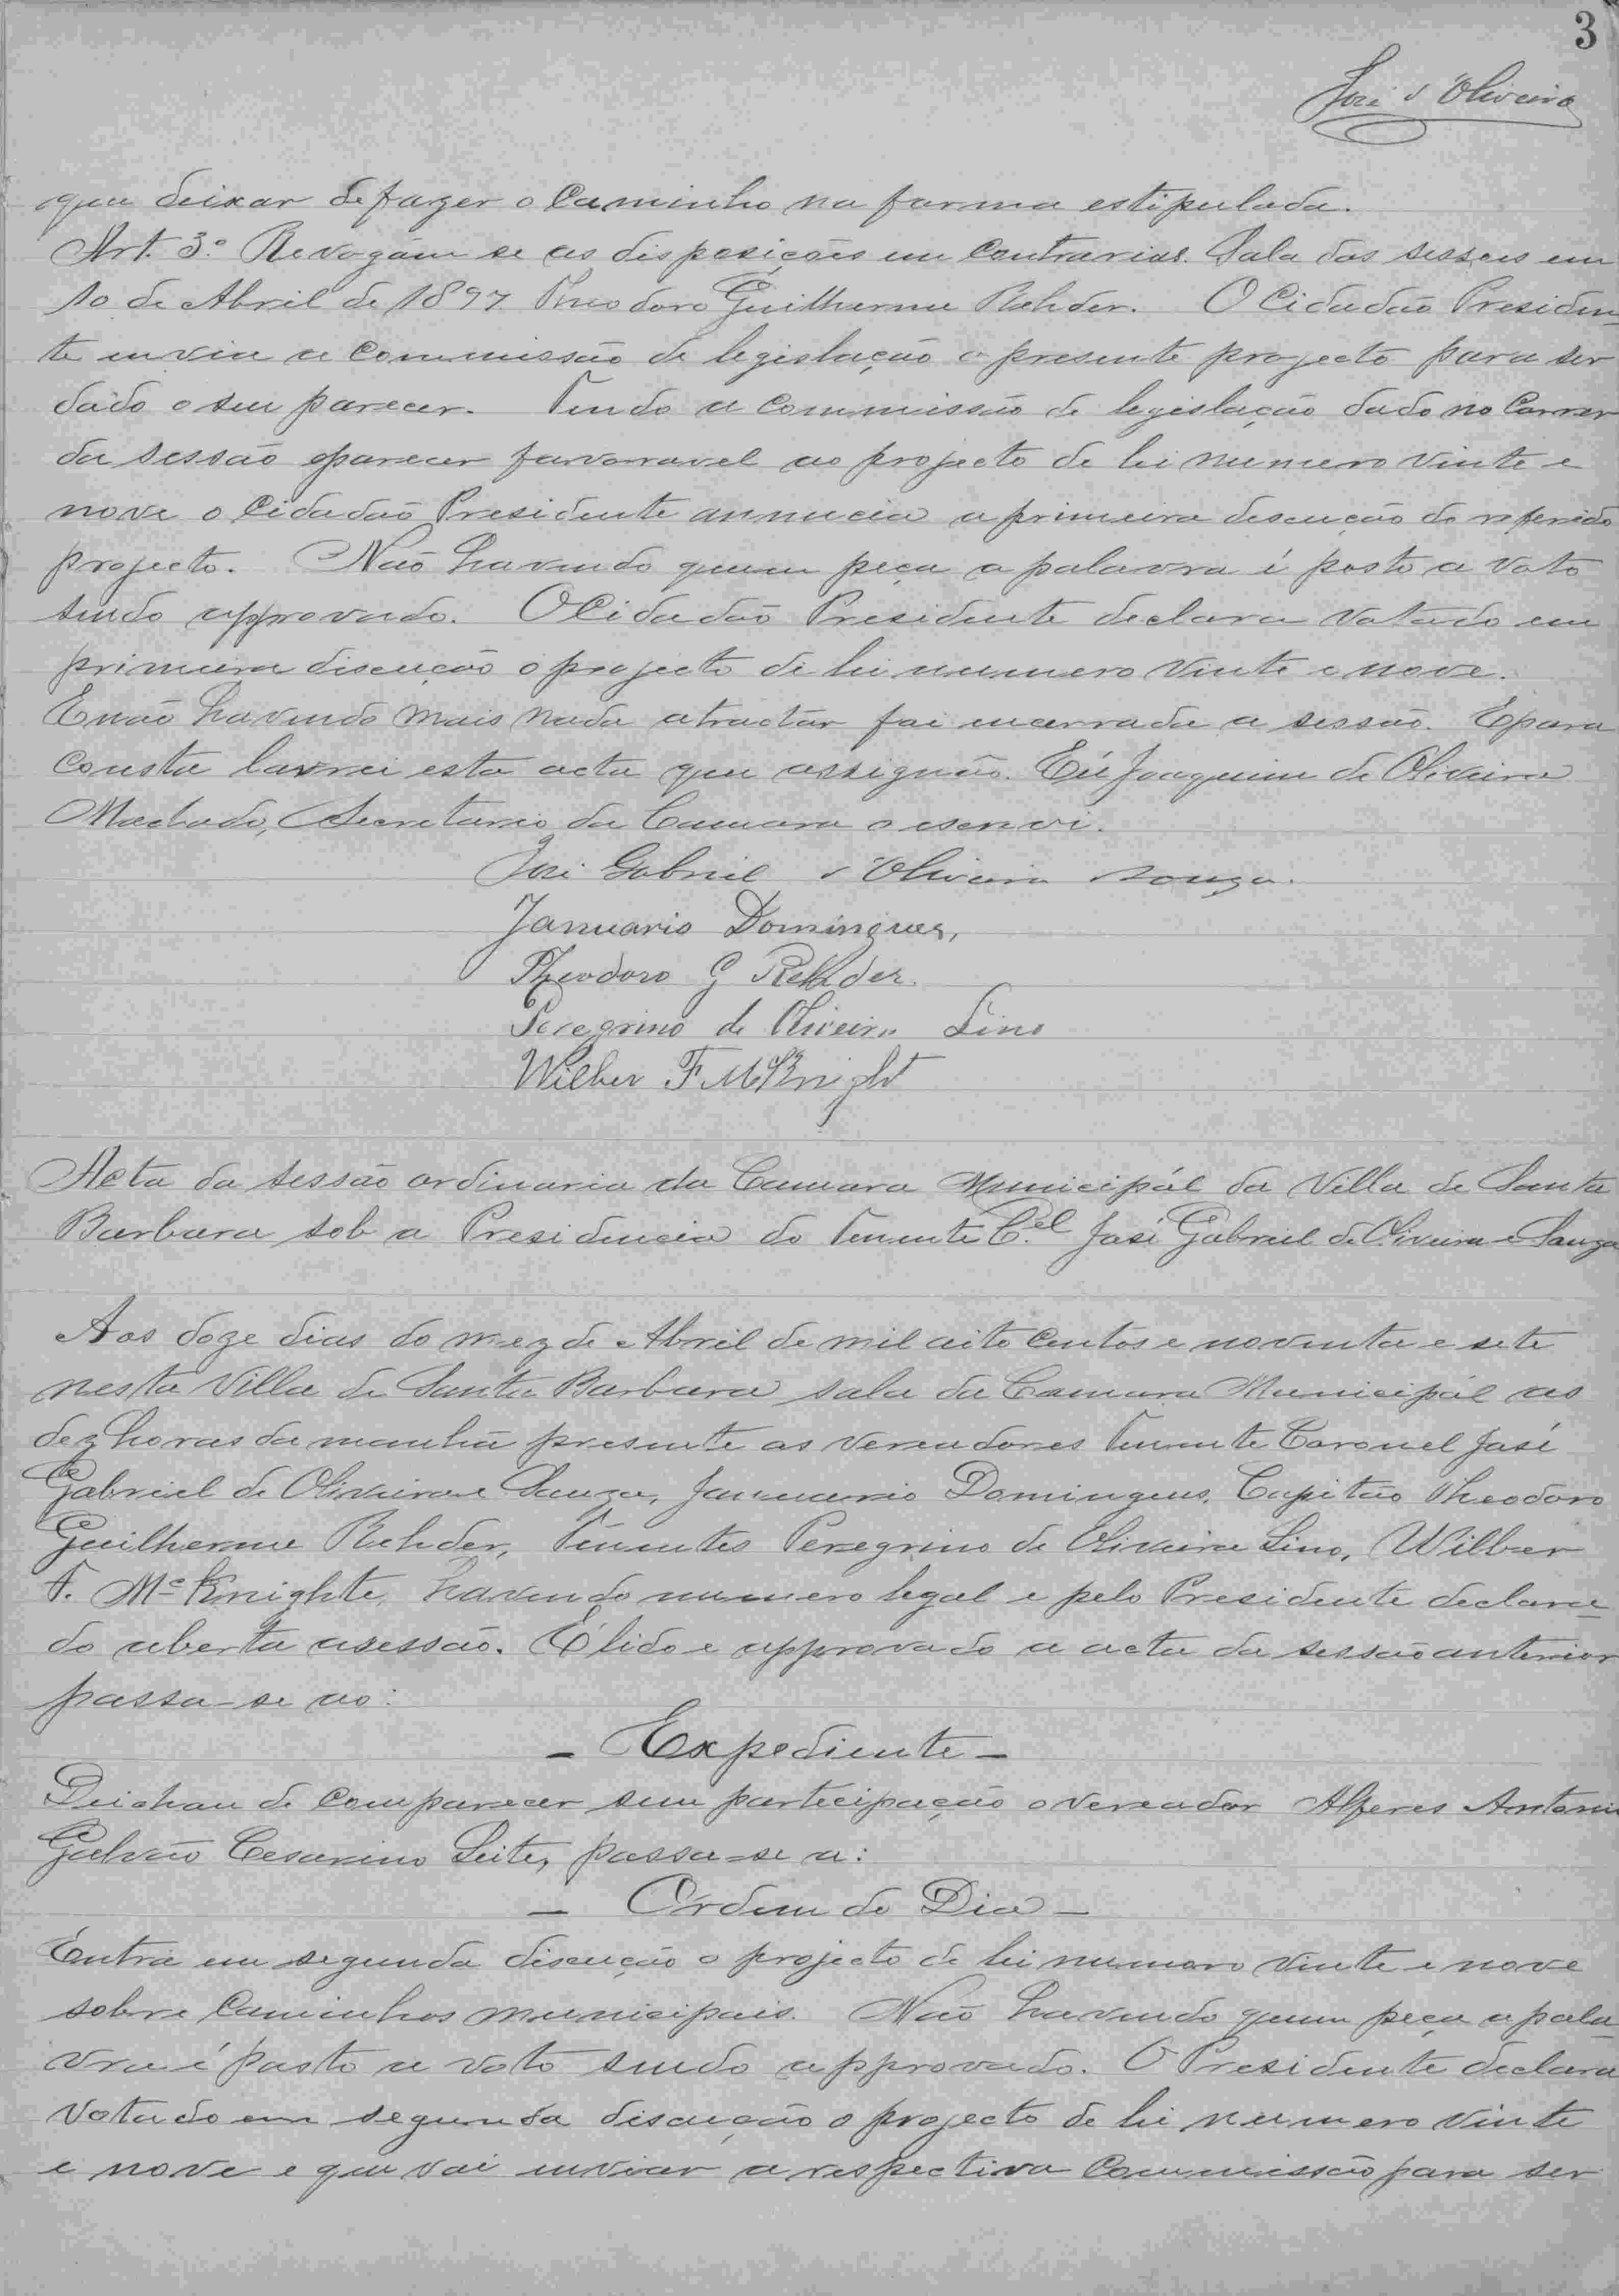 3
José d'Oliveira
que deixar de fazer o Caminho na forma estipulada.
Art. 3º Revogam se as disposições em Contrarias. Sala das sessões em
10 de Abril de 1897. Theodoro Guilherme Rehder. O Cidadão Presiden_
te envia a Commissão de legislação o presente projecto para ser
dado o seu parecer. Tendo a Commissão de legislação dado no Correr
da sessão o parecer favorravel ao projecto de lei numero vinte e
nove o Cidadão Presidente annucia a primeira descução do referido
projecto. Não havendo quem peça a palavra é posto a voto
sendo approvado. O Cidadão Presidente declara votado em
primeira discução o projecto de lei numero vinte e nove.
E não havendo mais nada a tractár foi encerrada a sessão. E para
Consta lavrei esta acta que assignão. Eu Joaquim de Oliveira
Machado, Secretario da Camara o escrevi.
José Gabriel d'Oliveira Souza.
Januario Domingues,
Theodoro G Rehder.
Peregrino de Oliveira Lino
Wilber F McKnight
Acta da sessão ordinaria da Camara Municipál da Villa de Santa
Barbara sob a Presidencia do Tenente C.el José Gabriel de Oliveira e Souza
Aos doze dias do mez de Abril de mil oito Centos e noventa e sete
nesta Villa de Santa Barbara sala da Camara Municipál as
dez horas da manhã presente os vereadores Tenente Coronel José
Gabriel de Oliveira e Souza, Januario Domingues, Capitão Theodoro
Guilherme Rehder, Tenentes Peregrino de Oliveira Lino, Wilber
F. Mc Knighte, havendo numero legal e pelo Presidente declara_
do aberta a sessão. É lido e approvado a acta da sessão anterior
passa-se ao:
- Expediente -
Deichou de Comparecer sem participação o vereador Alferes Antonio
Galvão Cesarino Leite, passa-se a:
- Ordem do Dia -
Entra em segunda discução o projecto de lei numero vinte e nove
sobre Caminhos municipais. Não havendo quem peça a pala_
vra é posto a voto sendo approvado. O Presidente declara
votado em segunda discução o projecto de lei numero vinte
e nove e que vai enviar a respectiva Commissão para ser